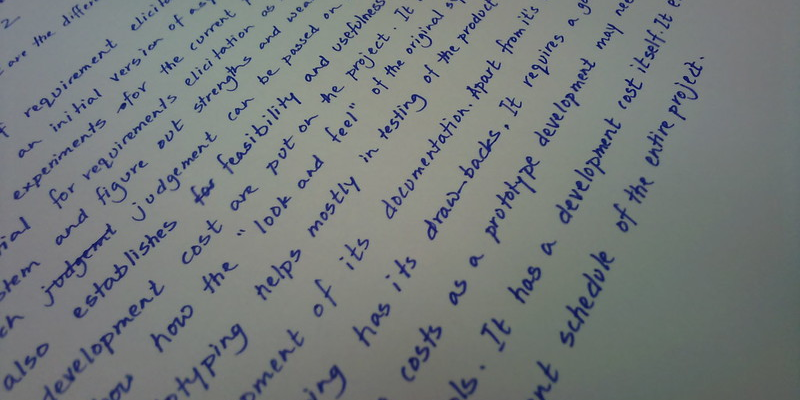 2
are the differ
f requirement elicit
an initial version of a sy
experiments for the current
ial for requirements elicitation as
stem and figure out strengths and wea
ch judgement can be passed on
also establishes for feasibility and usefulness
development cost are put on the project. It
how how the "look and feel" of the original sy
totyping helps mostly in testing of the product
opment of its documentation. Apart from it's
ing has its draw-backs. It requires a go
costs as a prototype development may nee
ls. It has a development cost itself. It e
nt schedule of the entire project.